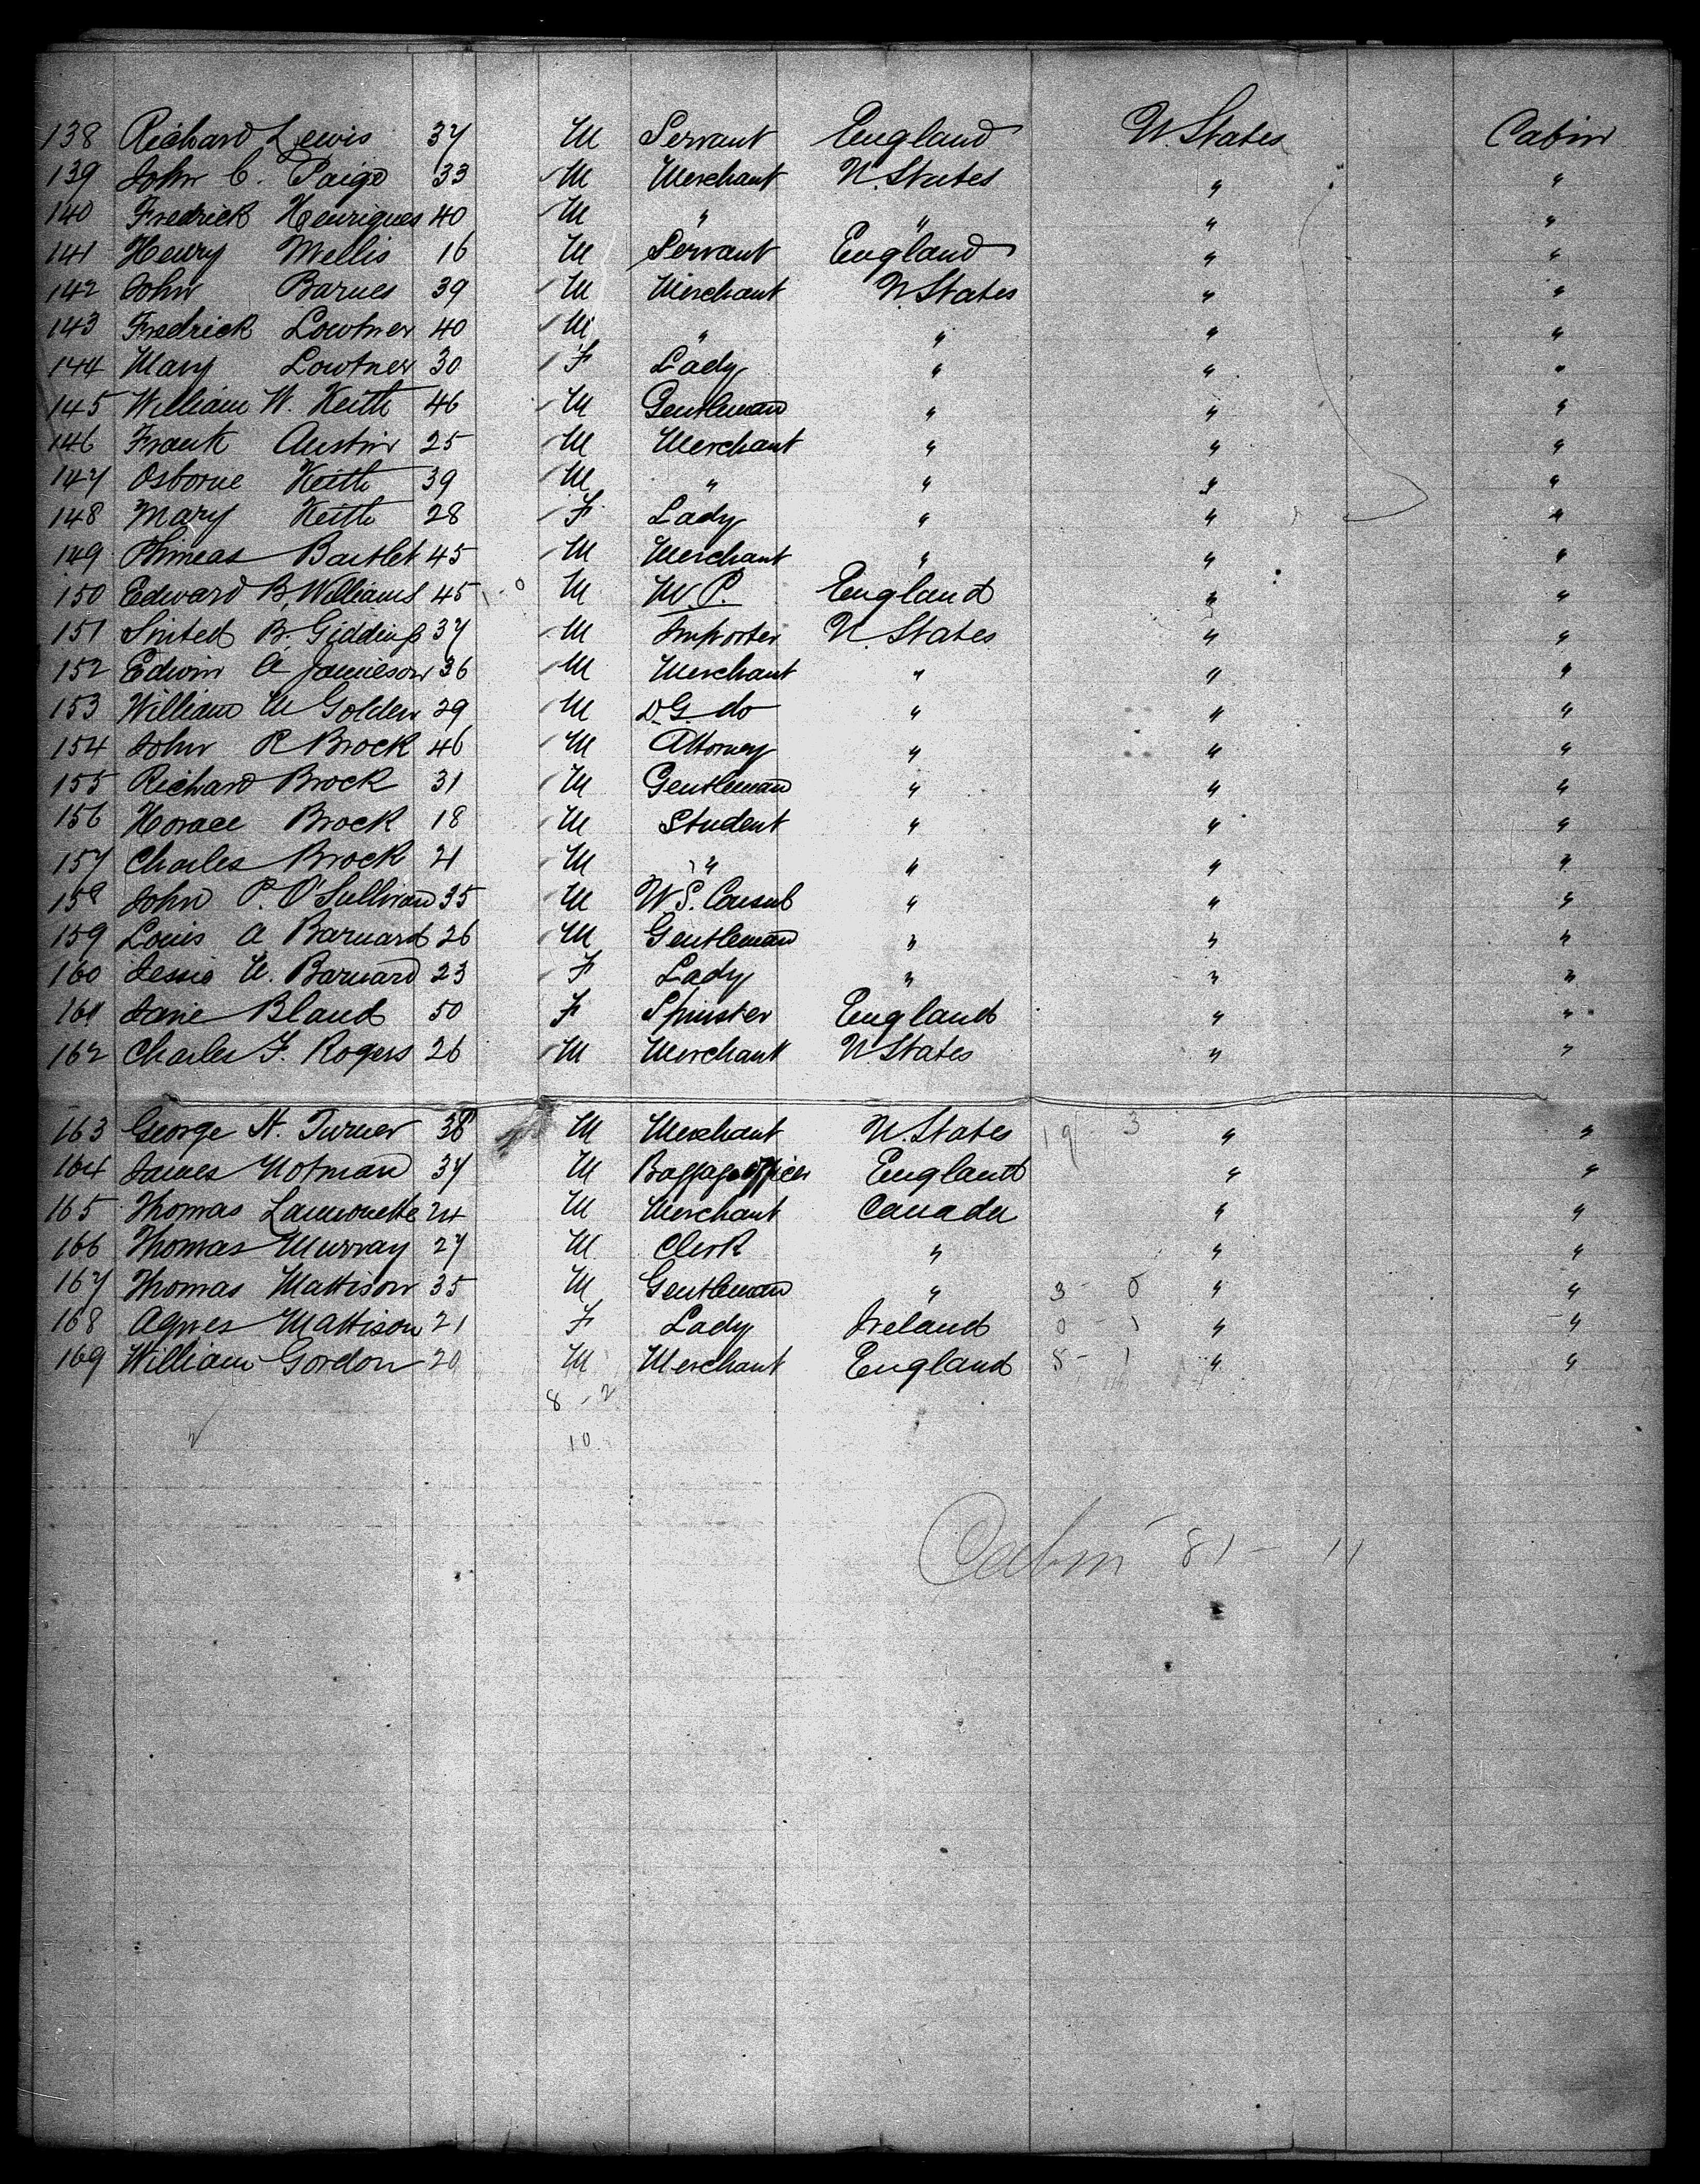 138 Richard Lewis 37 M Servant England U. States Cabin
139 John C. Paige 33 M Merchant U. States " "
140 Fredrick Henriques 40 M " " " "
141 Henry Mellis 16 M Servant England " "
142 John Barnes 39 M Merchant U. States " "
143 Fredrick Lowtner 40 M " " " "
144 Mary Lowtner 30 F Lady " " "
145 William W. Keith 46 M Gentleman " " "
146 Frank Austin 25 M Merchant " " "
147 Osborne Keith 39 M " " " "
148 Mary Keith 28 F Lady " " "
149 Phineas Bartlet 45 M Merchant " " "
150 Edward B. Williams 45 M M.P. England " "
151 B. Giddings 37 M Importer U. States " "
152 Edwin A Jamieson 36 M Merchant " " "
153 William M Golden 29 M D.G. do " " "
154 John P Brock 46 M Attorney " " "
155 Richard Brock 31 M Gentleman " " "
156 Horace Brock 18 M Student " " "
157 Charles Brock 21 M " " " "
158 John P. O'Sullivan 35 M U.S. Consul " " "
159 Louis A Barnard 26 M Gentleman " " "
160 Jessie A. Barnard 23 F Lady " " "
161 Jane Bland 50 F Spinster England " "
162 Charles F. Rogers 26 M Merchant U. States " "
163 George H. Turner 38 M Merchant U. States 19 - 3 " "
164 James Notman 37 M Baggage officer England " "
165 Thomas Lamonette 24 M Merchant Canada " "
166 Thomas Murray 27 M Clerk " " "
167 Thomas Mattison 35 M Gentleman " 3 - 0 " "
168 Agnes Mattison 21 F Lady Ireland 0 - 1 " "
169 William Gordon 20 M Merchant England 5 - 1 " "
8 - 2
10
Cabin 81 - 11